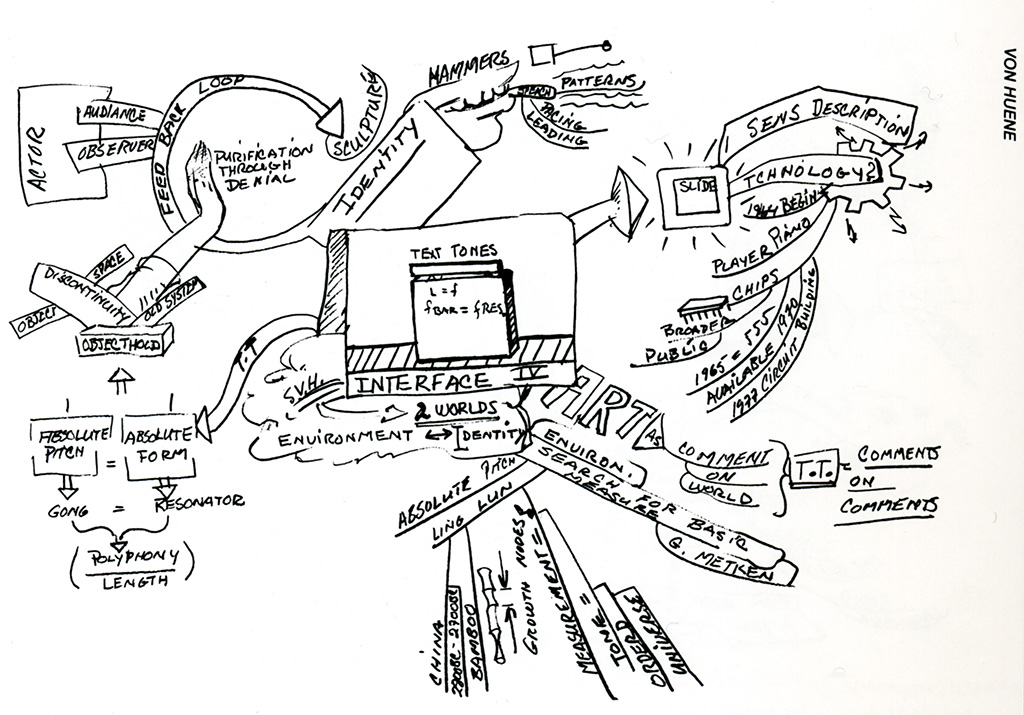 VON HUENE
ACTOR
AUDIANCE
OBSERVER
FEED BACK LOOP
PURIFICATION
THROUGH
DENIAL
SCULPTURE
IDENTITY
HAMMERS
SPEACH
PATTERNS
PACING
LEADING
SLIDE
SENS DESCRIPTION
TCHNOLOGY?
1964 BEGIN
PLAYER PIANO
CHIPS
BROADER
PUBLIC
1965 = 555
AVAILABLE 1970
1977 CIRCUIT
BUILDING
OBJECT
SPACE
DISCONTINUIM
OLD SYSTEM
OBJECTHOLD
TEXT TONES
L = f
fBAR = fRES
T.T
S.V.H.
INTERFACE IV
2 WORLDS
ENVIRONMENT ↔ IDENTITY
ABSOLUTE
PITCH
=
ABSOLUTE
FORM
GONG = RESONATOR
(POLYPHONY
LENGTH)
ART
AS
COMMENT
ON
WORLD
T.T. = COMMENTS
ON
COMMENTS
ENVIRON.
SEARCH FOR BASIC
MEASURE
G. METKEN
ABSOLUTE PITCH
LING LUN
CHINA
BAMBOO
GROWTH NODES?
MEASUREMENT =
MEASURE =
TONE
TO
ORDER
UNIVERSE